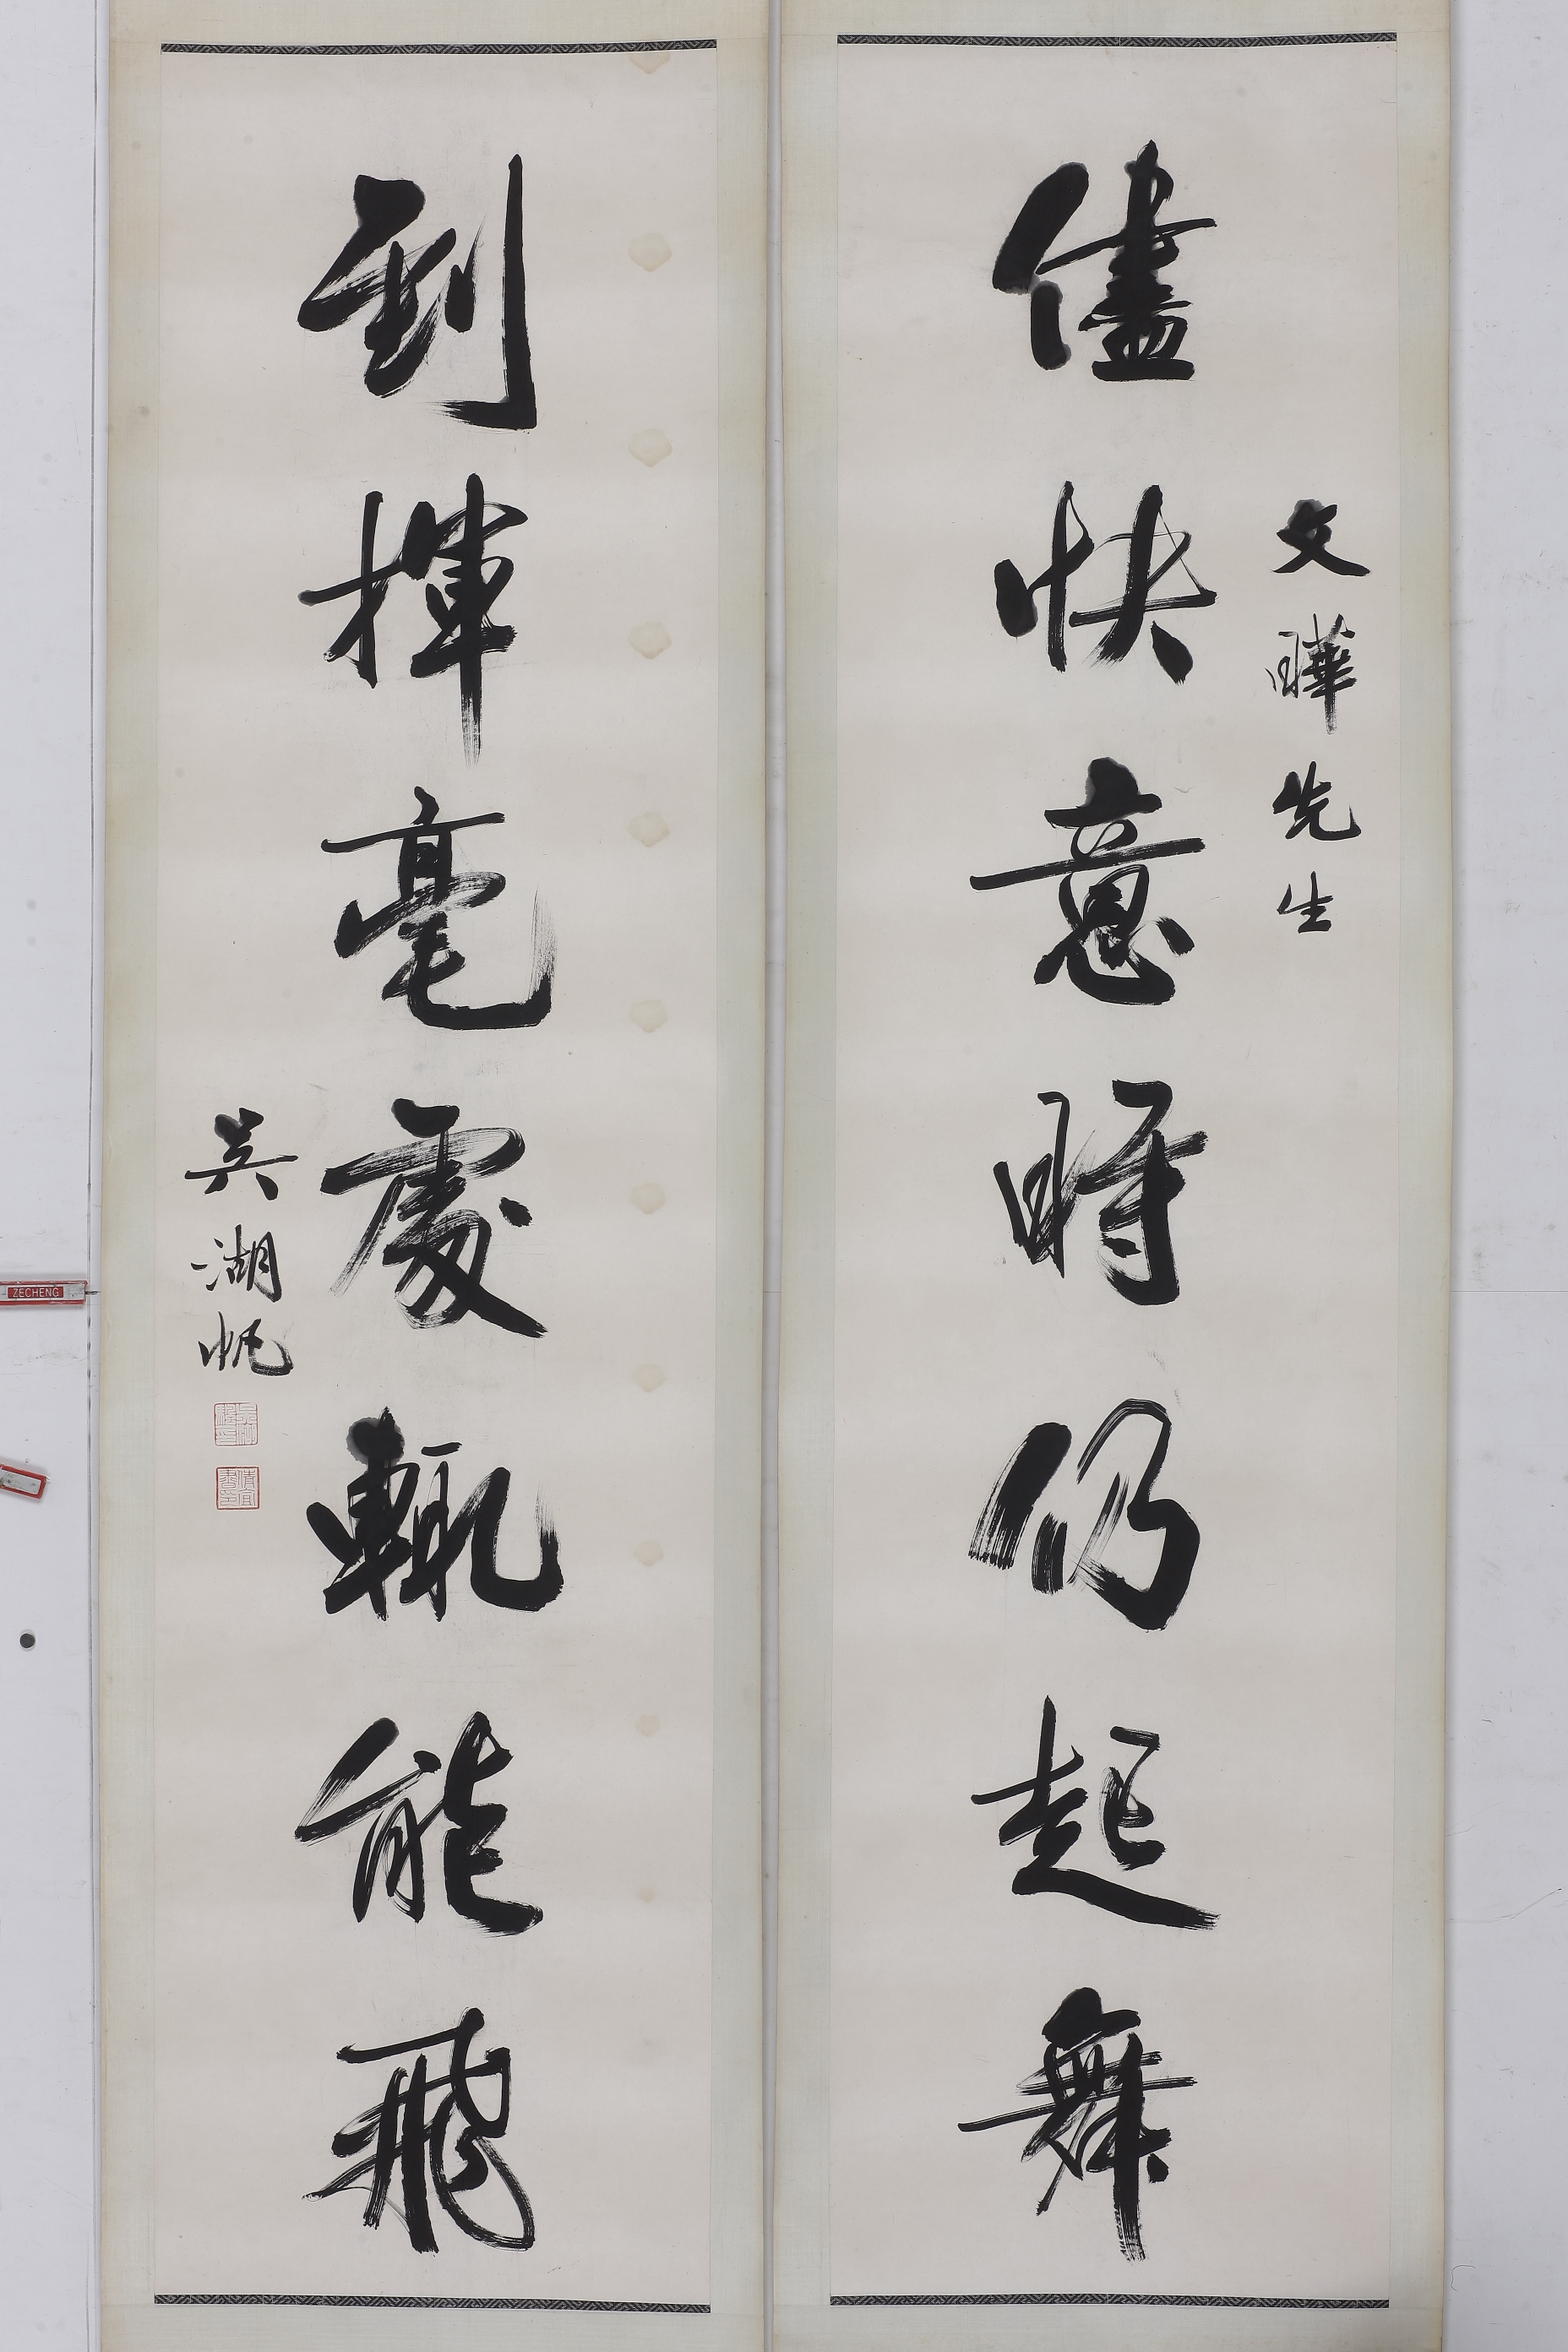 文曄先生
儘快意時仍起舞
到揮毫處輒能飛
吳湖帆
ZECHENG